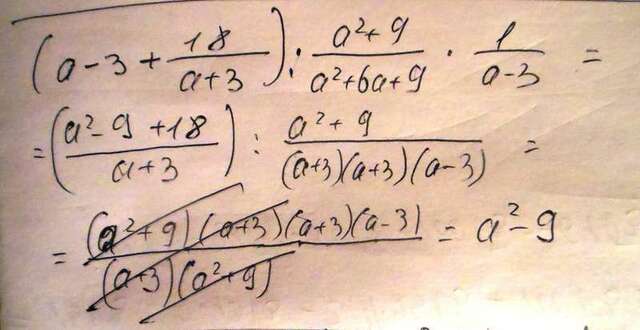 (a-3+18/(a+3)) : (a²+9)/(a²+6a+9) · 1/(a-3) =
= ((a²-9+18)/(a+3)) : (a²+9)/((a+3)(a+3)(a-3)) =
= ((a²+9)(a+3)(a+3)(a-3))/((a+3)(a²+9)) = a²-9